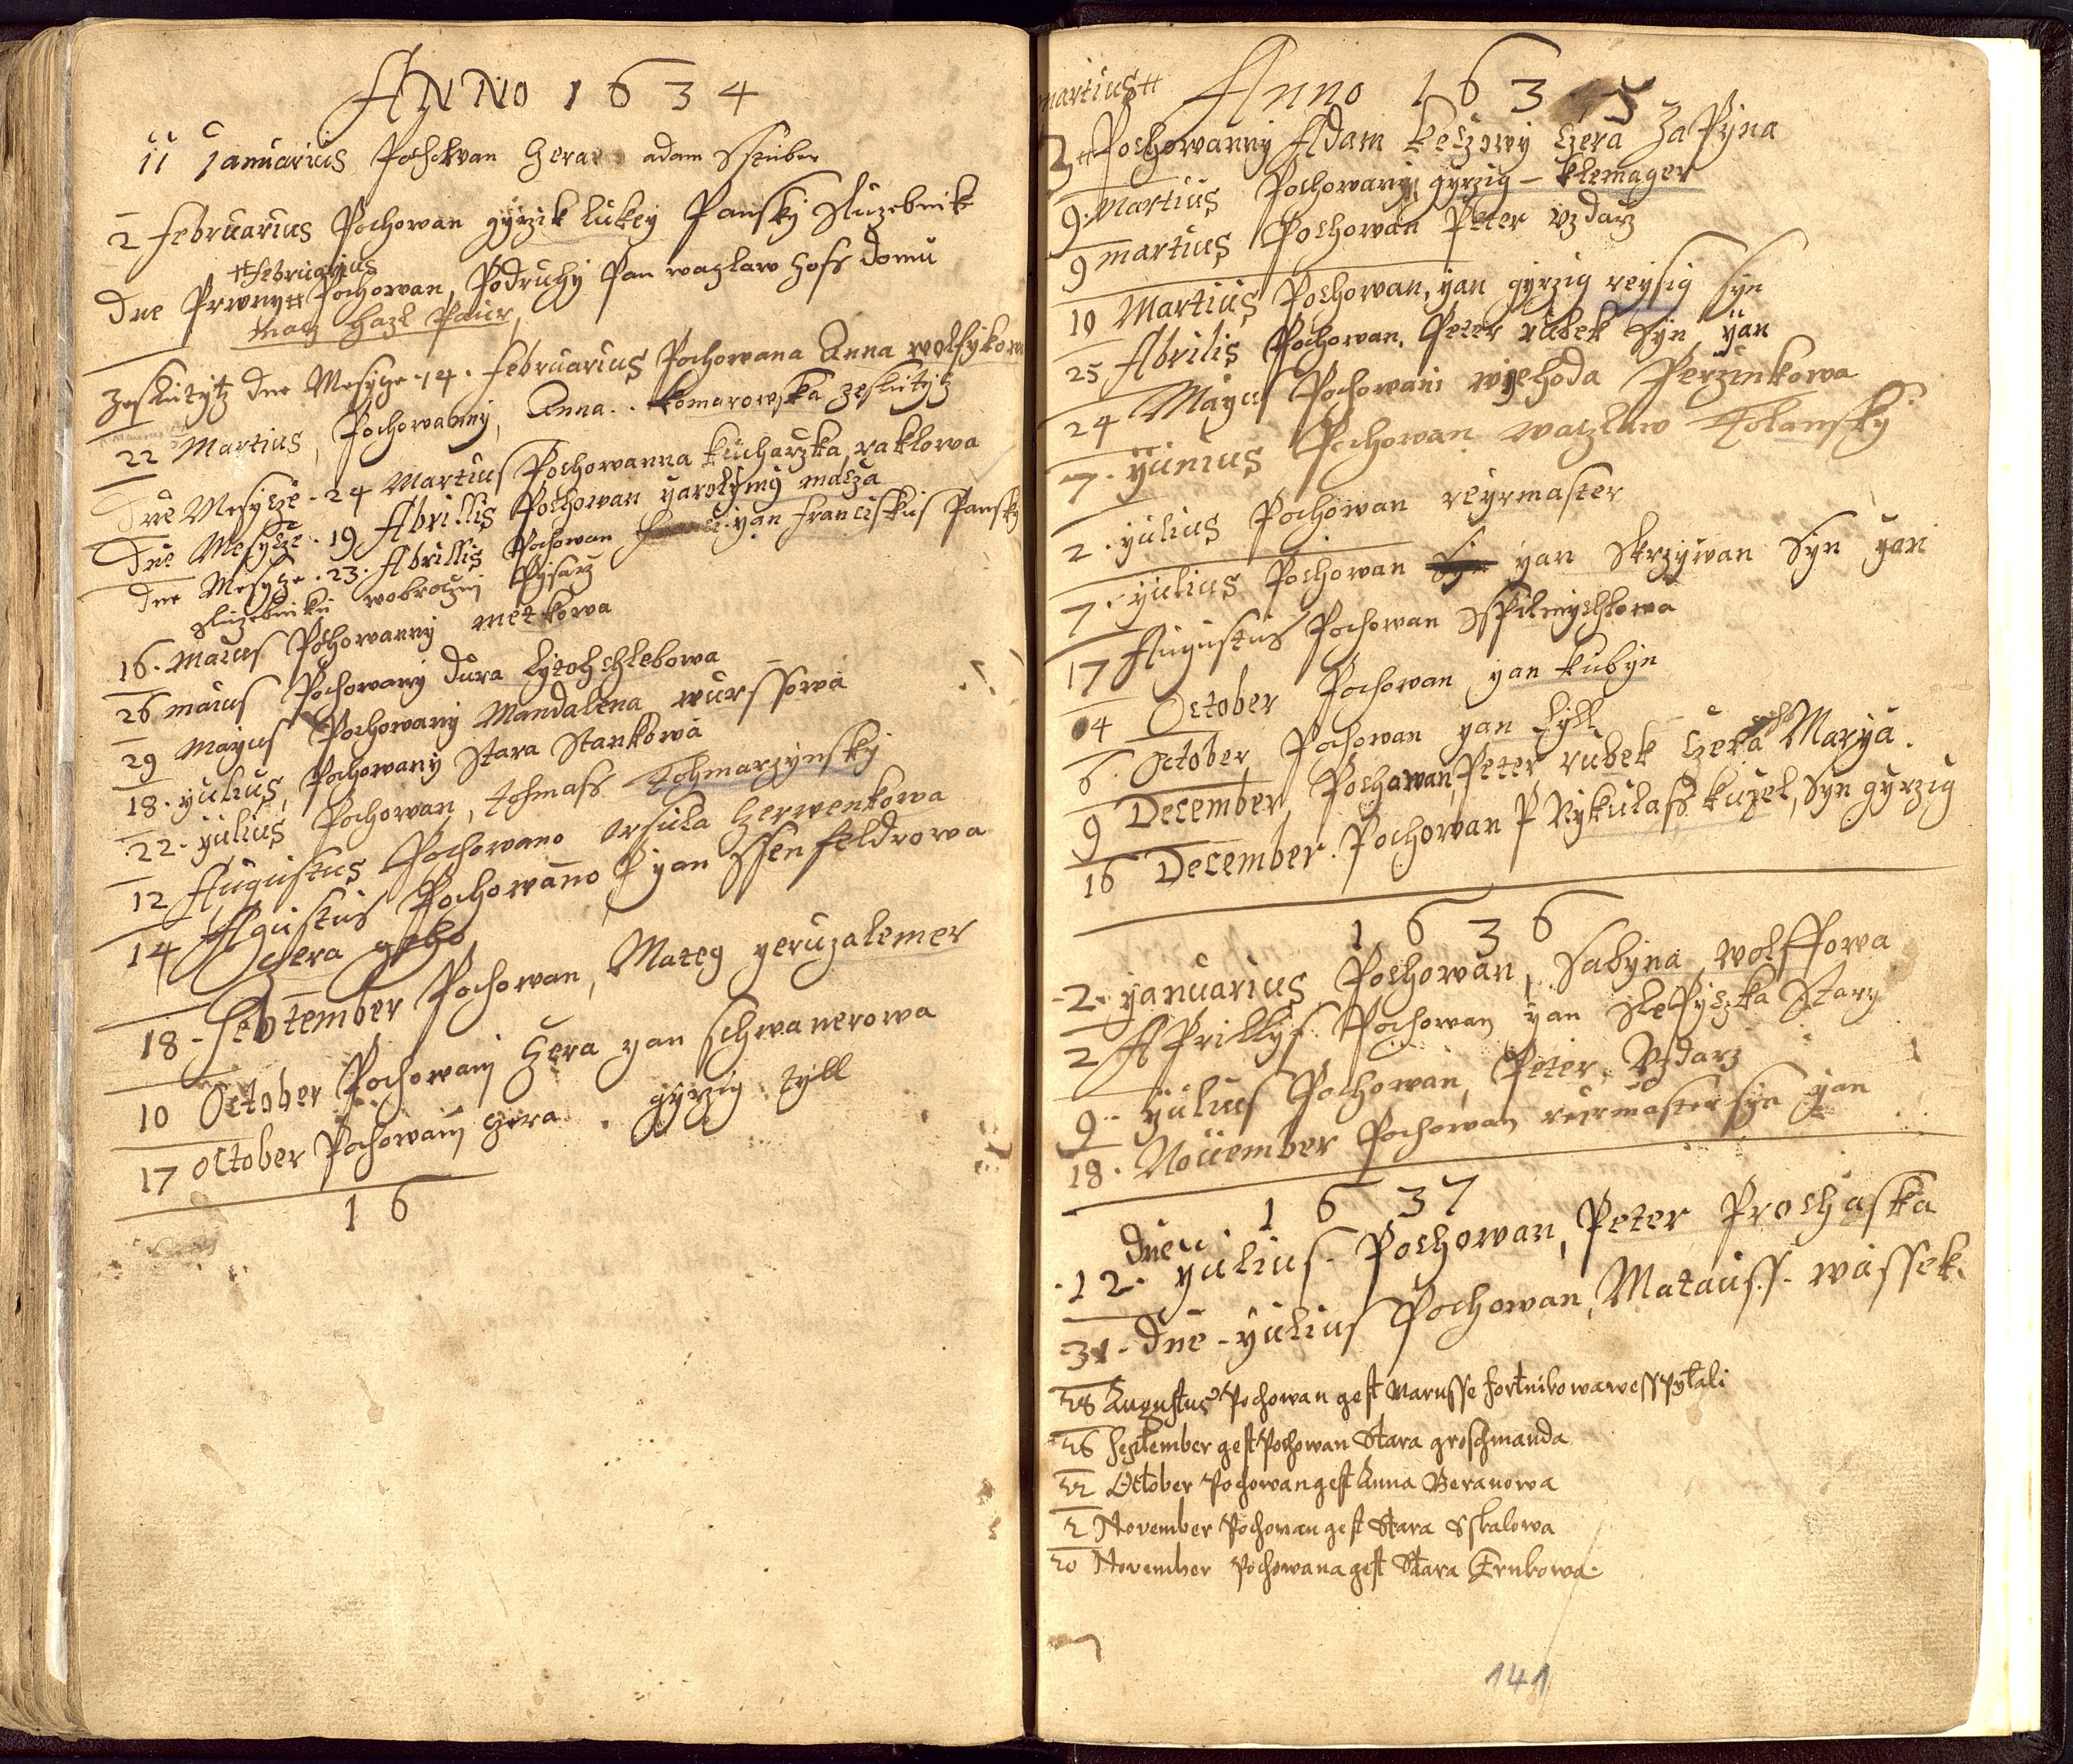 ANNO 1634
11 Januarius Pochowan Czera adam Sstuber
2 februarius Pochowan gyrzik lukey Pansky Sluzebnik
++februarius
dne Prwny++ Pochowan, Podruhy Pan waczlaw hofs domu
hazl Paur
dne Mesyce .14. februarius Pochowana Anna wolfykow
22 Martius, Pochowanny, Anna.. komarowska
dne Mesycze .24 Martius Pochowanna kucharzka, raklowa
dne Mesycze .19 Abrillis Pochowan yarolymy macza
dne Mesycze .23. Abrillis Pochowan yan franciskus Pansky
Sluzebniku wobroczny Pysarz
16. maius Pochowanny metkowa
26 maius Pochowany dura Lytochchlebowa
29 mayus Pochowany Mandalena wurssowa
18. yulius, Pochowany Stara Stankowa
22. yulius Pochowan, tohmass Tohmarzynsky
12 Augustus Pochowano orsula Czerwenkowa
14 Agustus Pochowano P yan Ssenfeldrowa
Czera geho
18 - September Pochowan, Mateg yeruzalemer
10 October Pochowany Czera yan schwanerowa
17 October Pochowany Czera . gyrzig tyll
16
martius++ Anno 1635
3 ++Pochowanny Adam keczowy Czera Zapyna
9. Martius Pochowany, gyrzig - klemager
9 martius Pochowan Peter vzdarz
10 Martius Pochowan, yan gyrzig reysig syn
25 Abrilis Pochowan, Peter rubek Syn, yan
24 Mayus Pochowani wyehoda Perzinkowa
7. yunius Pochowan waczlaw Kolansky
2. yulius Pochowan reyrmaster
7. yulius Pochowan yan Skrzywan Syn yan
17 Augustus Pochowan Sspilmychlowa
4 October Pochowan yan kubyn
6. October Pochowan yan Lyll
9 December, Pochawan, Peter rubek Czera Marya.
16 December. Pochowan P Nykulass kuzel, Syn gyrzig
1636
2. yanuarius Pochowan, Sabyna wolffowa
2 Aprillys Pochowan yan Slepyczka Stary
9.. yulius Pochowan, Peter Vzdarz
18. Nouember Pochowan reyrmaster syn yan
1637
dne
.12. yulius. Pochowan, Peter Prochaska
31. dne - yulius Pochowan, Matauss. wassek.
28 Augustus Pochowan gest Marusse fortnikowa wesspytali
26 September gest Pochowan Stara groschmanda
22 October Pochowan gest Anna Beranowa
2 November Pochowan gest Stara Sskalowa
20 November Pochowana gest Stara Trnkowa
141